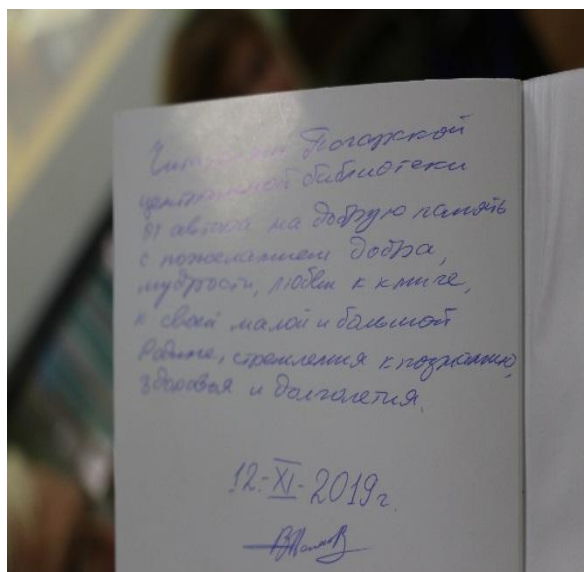 Читателям Погарской
центральной библиотеки
от автора на добрую память
с пожеланием добра,
мудрости, любви к книге,
к своей малой и большой
Родине, стремления к познанию,
здоровья и долголетия.
12-XI-2019г.